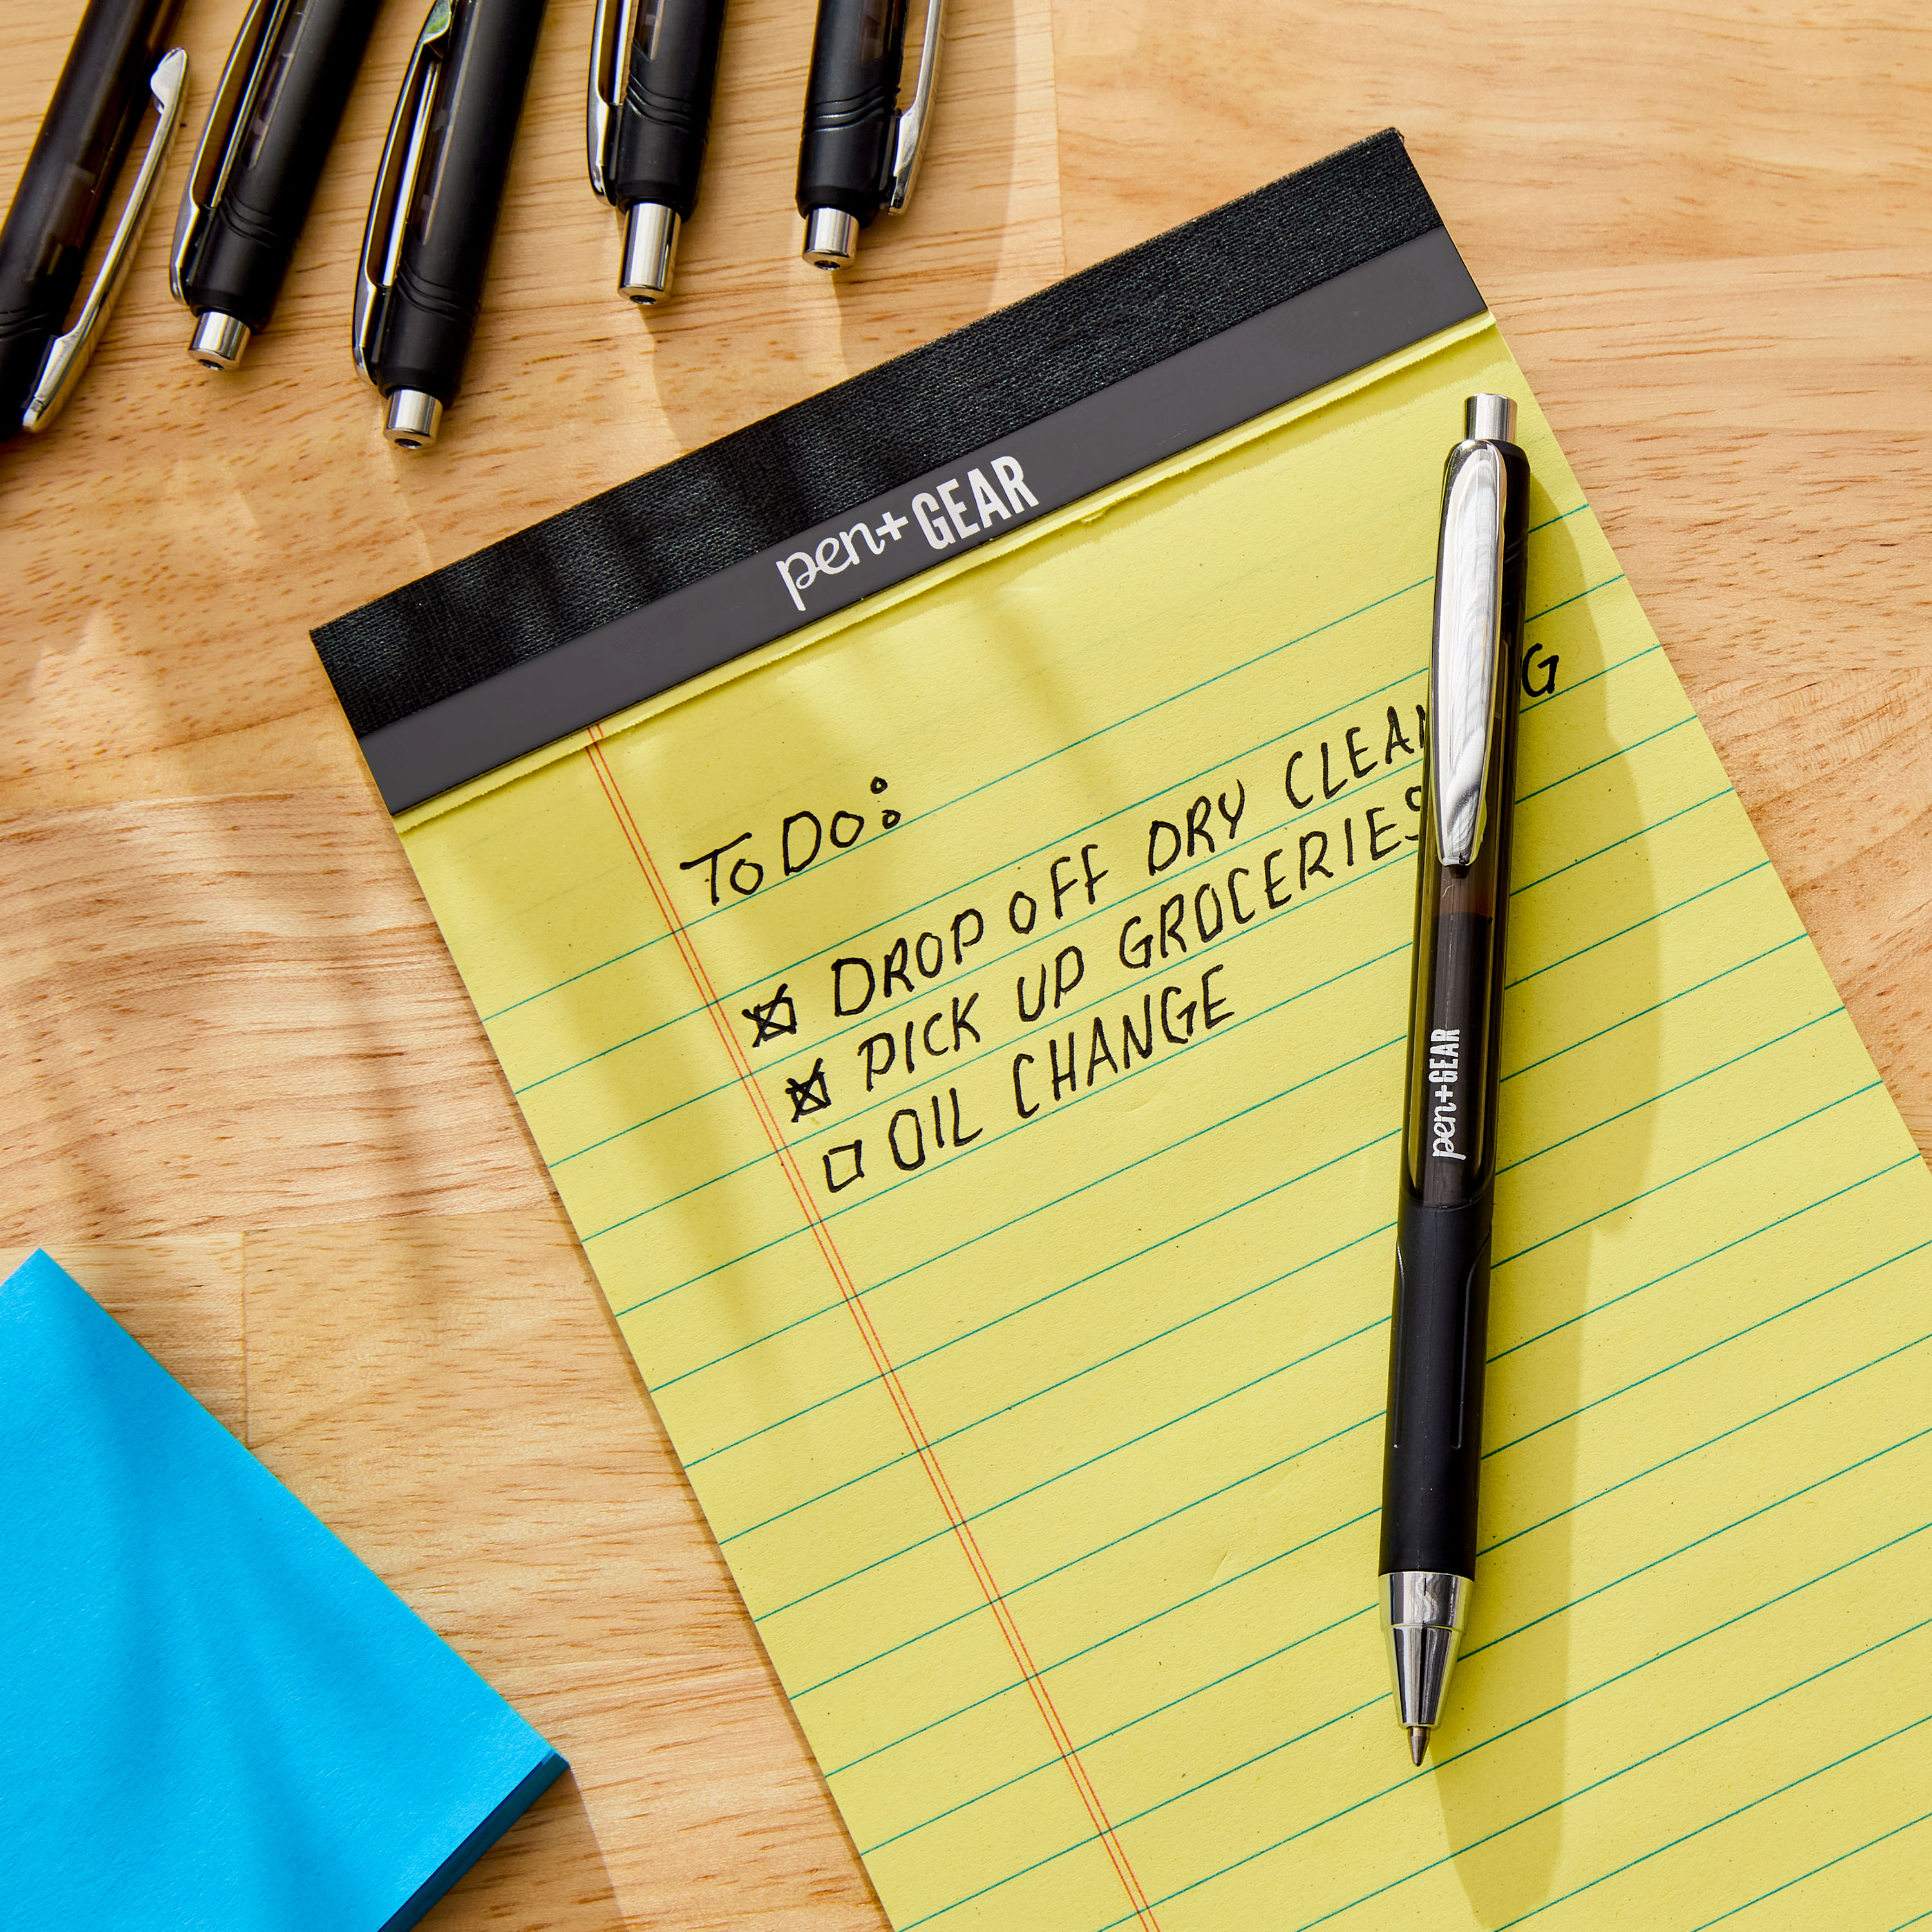 pen+GEAR
To Do:
☒ DROP OFF DRY CLEAN G
☒ PICK UP GROCERIES
☐ OIL CHANGE
pen+GEAR